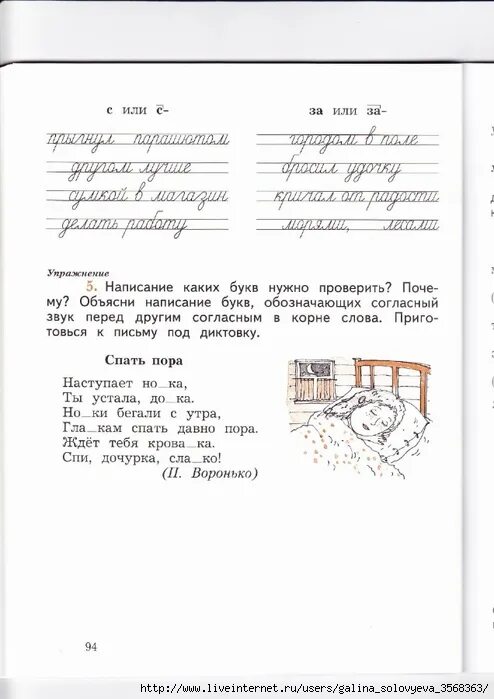 с или с-
за или за-
прыгнул парашютом
другом лучше
сумкой в магазин
делать работу
городом в поле
бросил удочку
кричал от радости
морями, лесами
Упражнение
5. Написание каких букв нужно проверить? Поче-
му? Объясни написание букв, обозначающих согласный
звук перед другим согласным в корне слова. Приго-
товься к письму под диктовку.
Спать пора
Наступает но_ка,
Ты устала, до_ка.
Но_ки бегали с утра,
Гла_кам спать давно пора.
Ждёт тебя крова_ка.
Спи, дочурка, сла_ко!
(П. Воронько)
94
http://www.liveinternet.ru/users/galina_solovyeva_3568363/